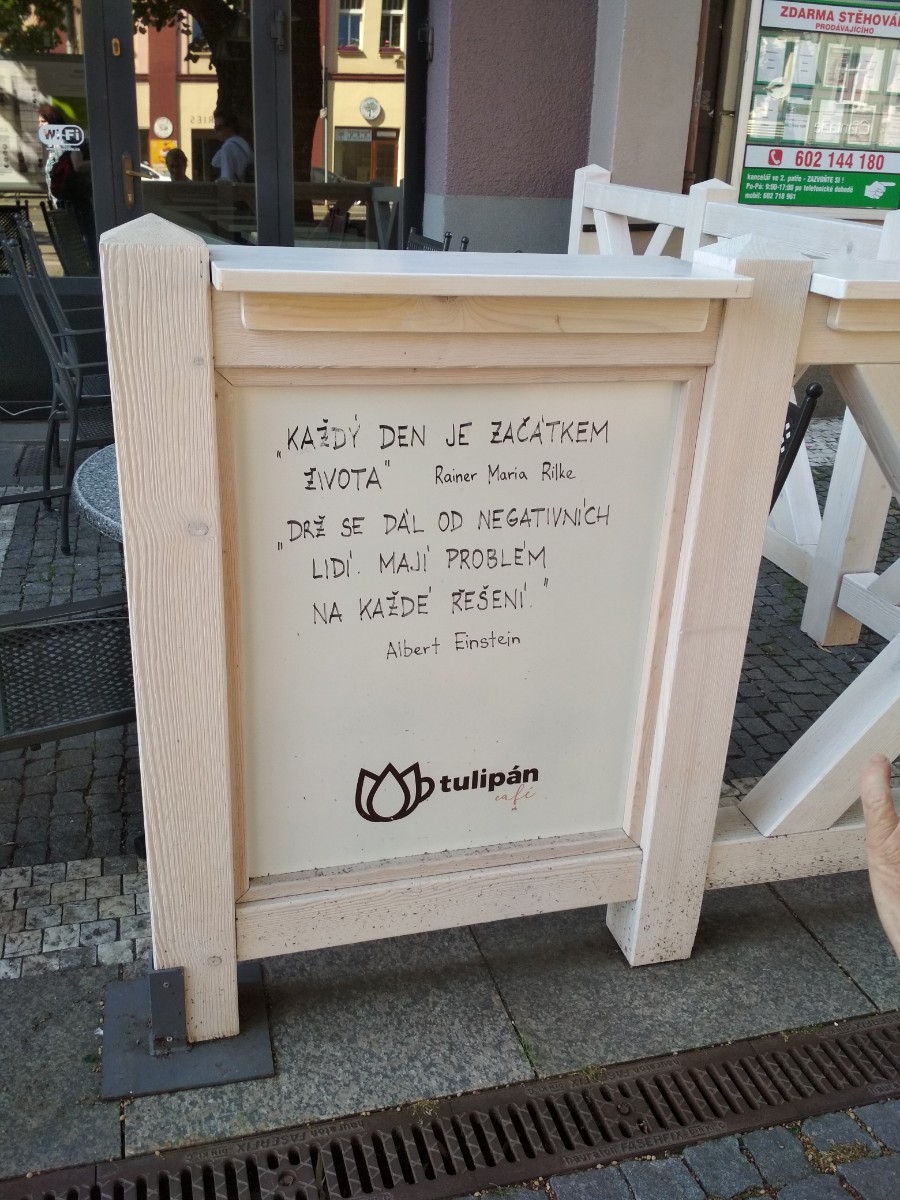 ZDARMA STĚHOVÁN
PRODÁVAJÍCÍHO
Wi-Fi
602 144 180
kancelář ve 2. patře - ZAZVOŇTE SI !
Po-Pá: 9:00-17:00 po telefonické dohodě
mobil: 602 718 961
„KAŽDÝ DEN JE ZAČÁTKEM
ŽIVOTA" Rainer Maria Rilke
„DRŽ SE DÁL OD NEGATIVNÍCH
LIDÍ. MAJÍ PROBLÉM
NA KAŽDÉ ŘEŠENÍ."
Albert Einstein
tulipán
café
hauraton FASERFIX